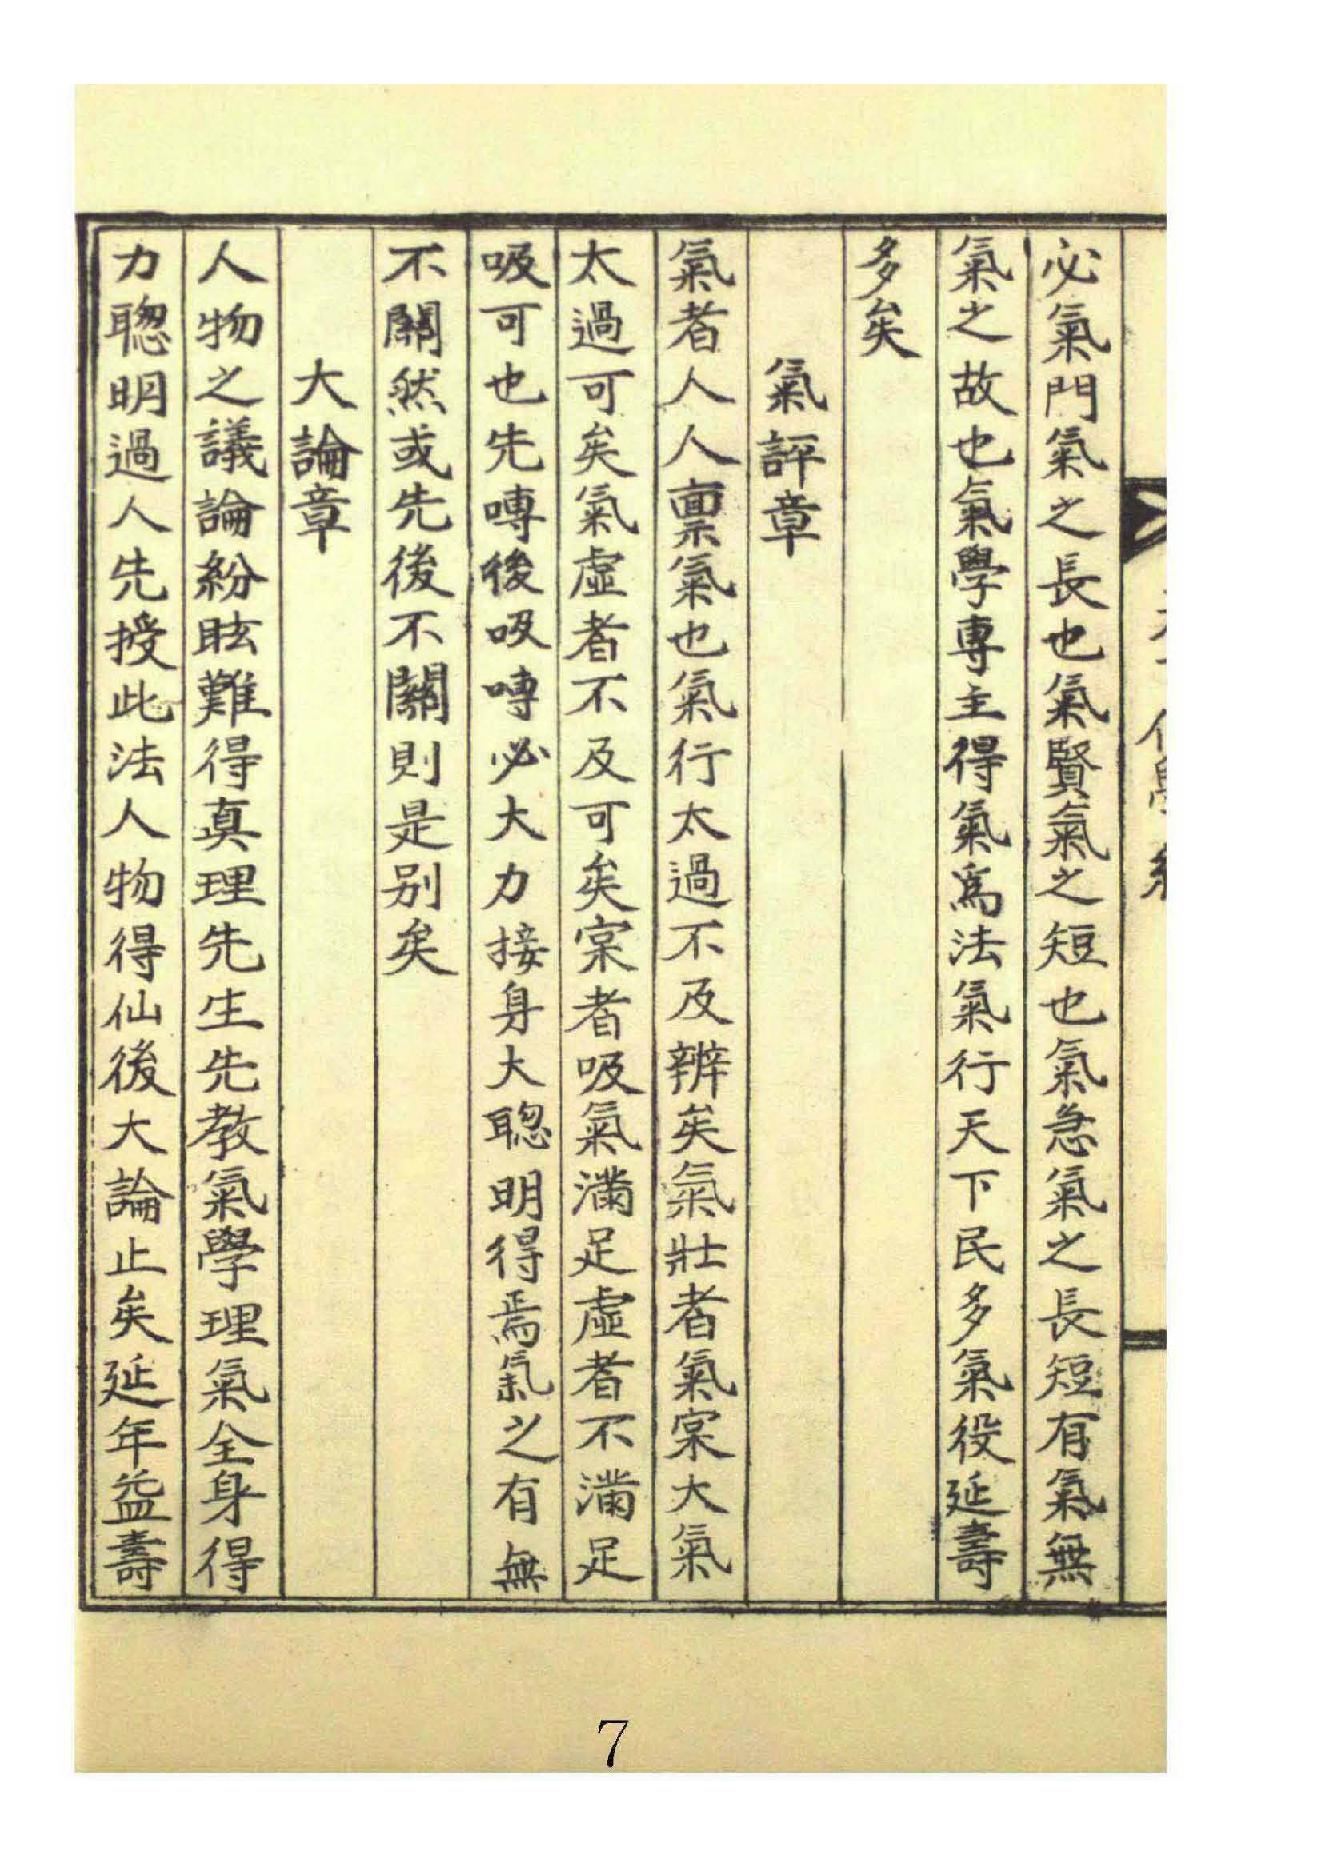 必氣門氣之長也氣賢氣之短也氣急氣之長短有氣無
氣之故也氣學專主得氣爲法氣行天下民多氣役延壽
多矣
氣評章
氣者人人禀氣也氣行太過不及辨矣氣壯者氣寀大氣
太過可矣氣虛者不及可矣寀者吸氣滿足虛者不滿足
吸可也先嘑後吸嘑必大力接身大聰明得焉氣之有無
不關然或先後不關則是別矣
大論章
人物之議論紛眩難得真理先生先教氣學理氣全身得
力聰明過人先授此法人物得仙後大論止矣延年益壽
7